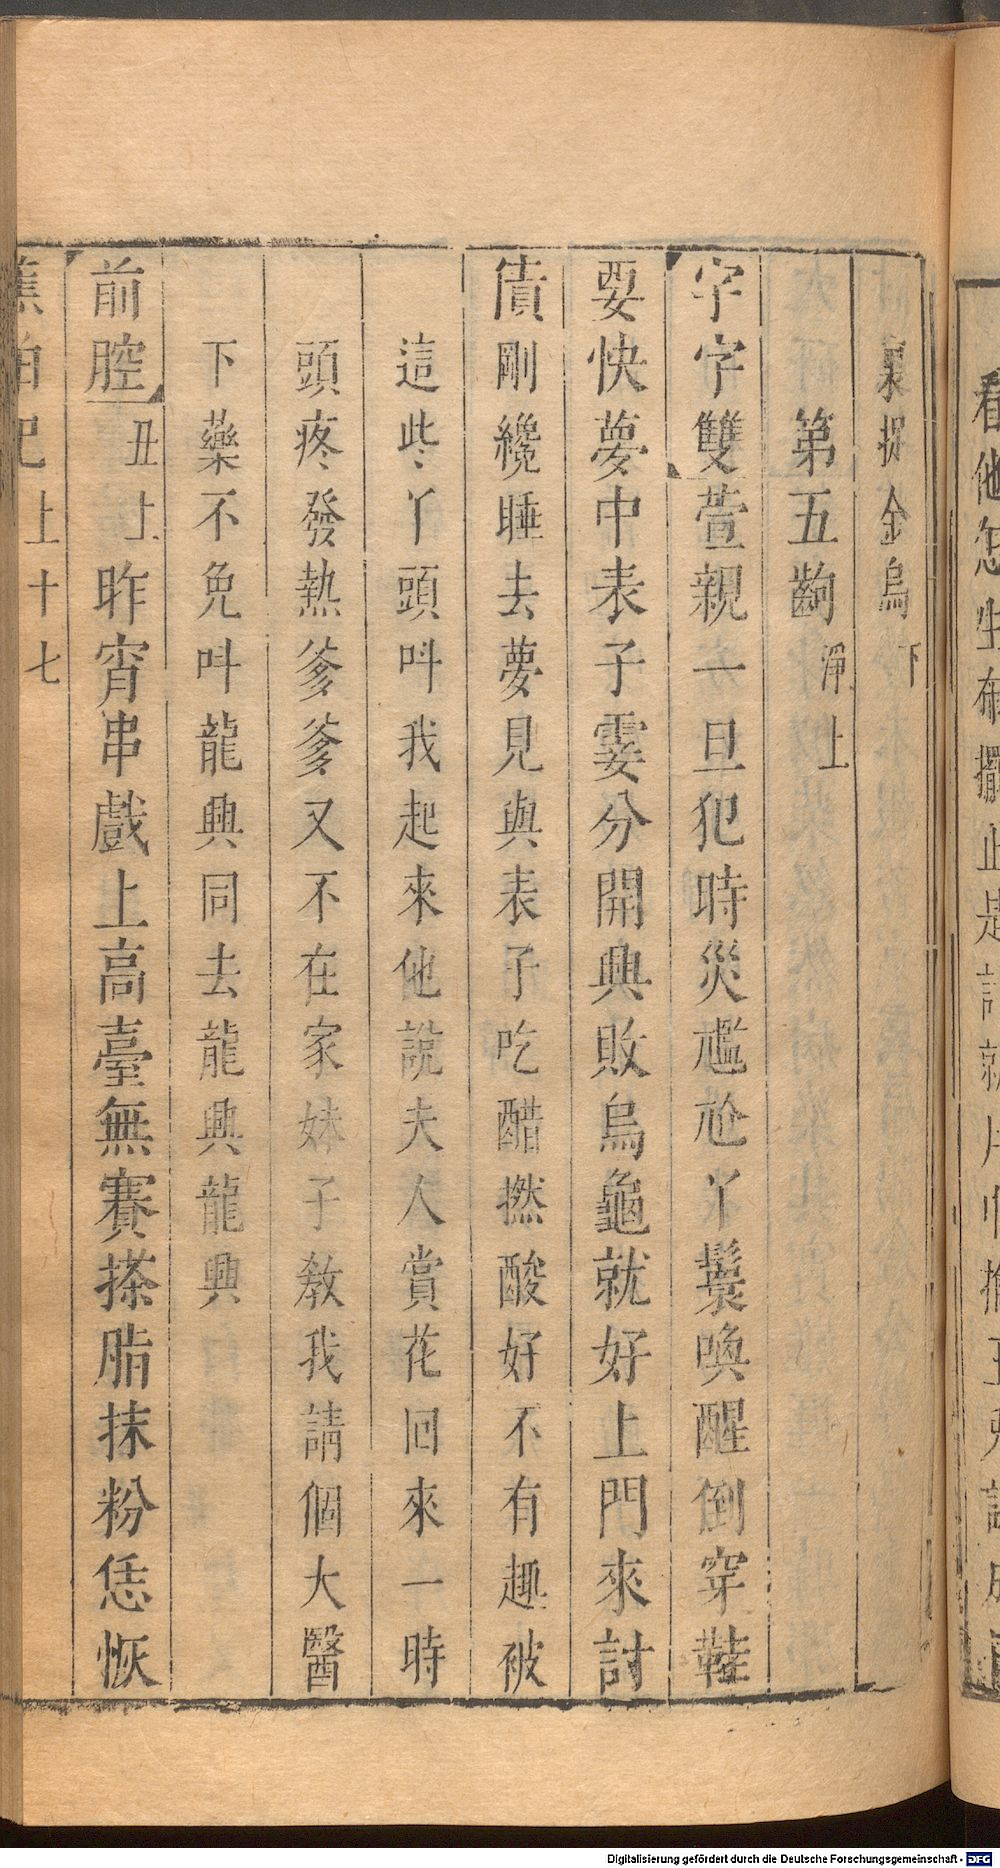 裏捉金烏下
第五齣淨上
字字雙萱親一旦犯時災尷尬丫鬟喚醒倒穿鞋
要快夢中表子霎分開興敗烏龜就好上門來討
債剛纔睡去夢見與表子吃醋撚酸好不有趣被
這些丫頭呌我起來他說夫人賞花回來一時
頭疼發熱爹爹又不在家妹子敎我請個大醫
下藥不免呌龍興同去龍興龍興
前腔丑上昨宵串戲上高臺無賽搽脂抹粉恁恢
蕉帕記上十七
看他怎生布擺此是
Digitalisierung gefördert durch die Deutsche Forschungsgemeinschaft - DFG